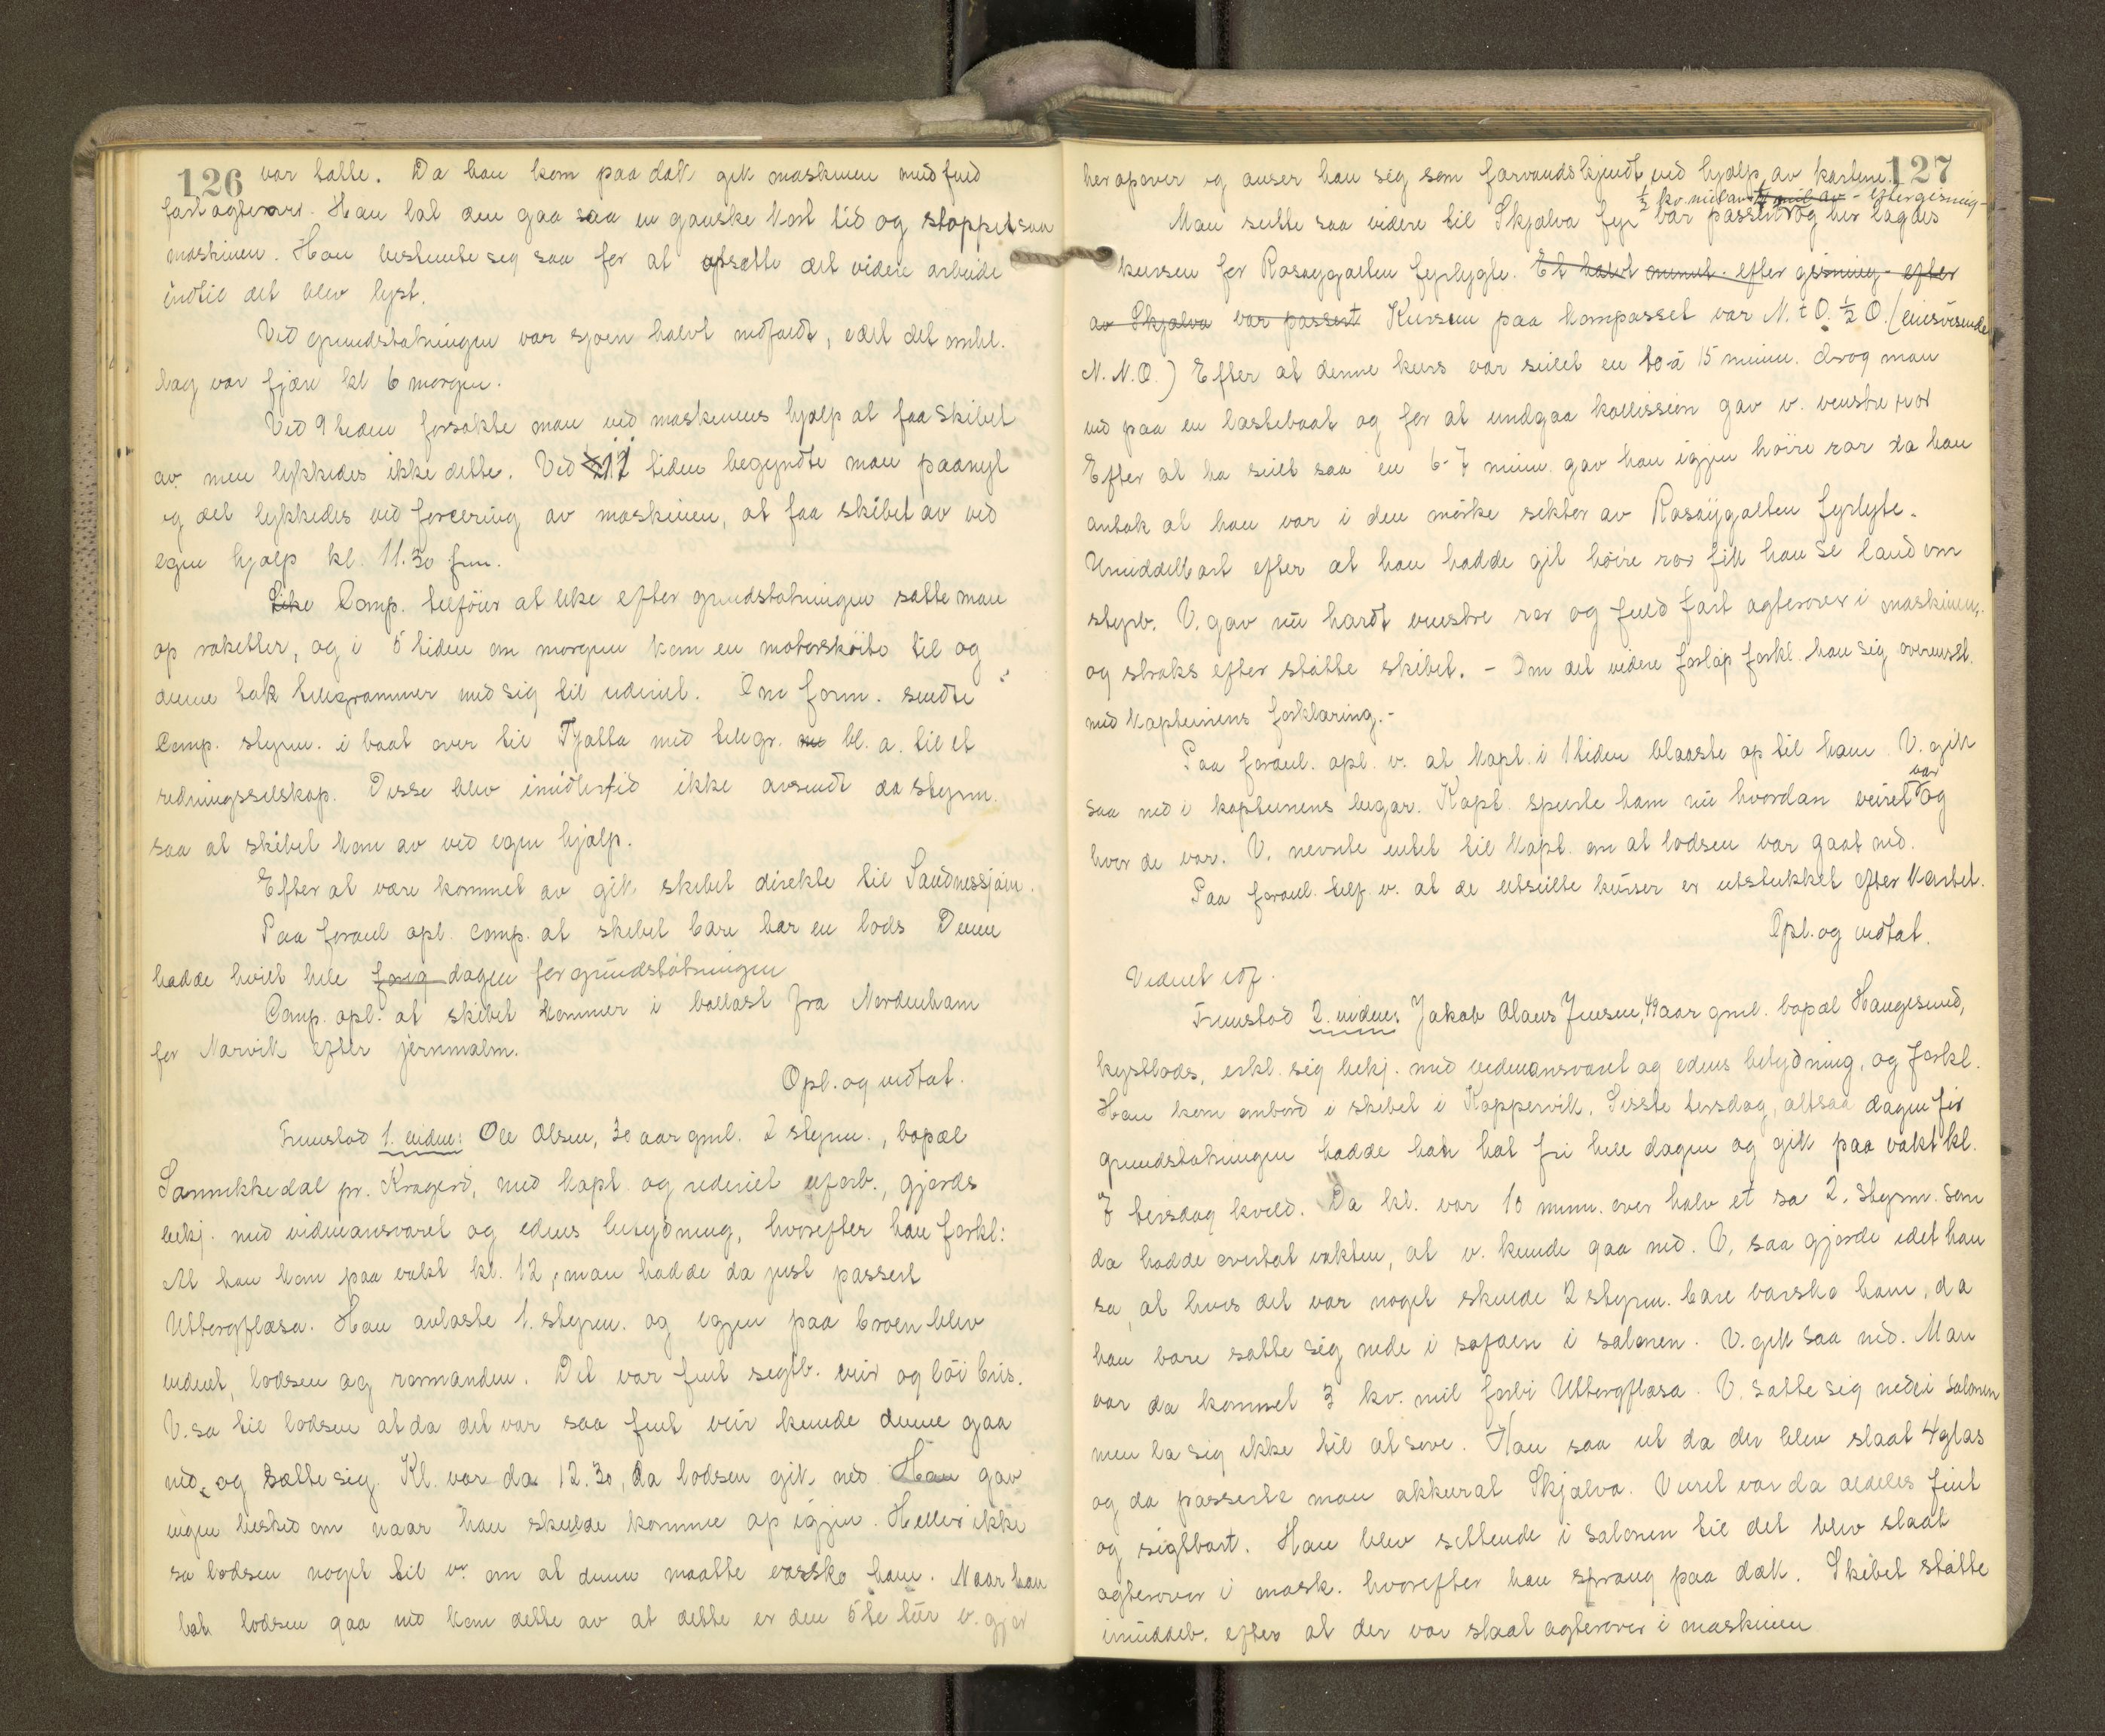 126 var støtte. Da han kom paa dæk gik maskinen med fuld
fart agterover. Han lot den gaa saa en ganske kort tid og stoppet saa
maskinen. Han bestemte seg saa for at opsætte det videre arbeide
indtil det blev lyst.
Ved grundstøtningen var sjøen halvt utfaldt, idet det omhl.
dag var fjære kl 6 morgen.
Ved 9 tiden forsøkte man ved maskinens hjælp at faa skibet
av men lykkedes ikke dette. Ved 11 tiden begyndte man paanyt
og det lykkedes ved forcering av maskinen, at faa skibet av ved
egen hjælp kl. 11.30 fm.
Like Comp. tilføier at like efter grundstøtningen satte man
op raketter, og i 5 tiden om morgen kom en motorskøite til og
denne tok telegrammer med sig til rederiet. Om form. sendte
Comp. styrm. i baat over til Tjøtta med telegr. bl. a. til et
redningsselskap. Disse blev imidlertid ikke avsendt da styrm.
saa at skibet kom av ved egen hjælp.
Efter at være kommet av gik skibet direkte til Sandnessjøen.
Paa foranl. opl. comp. at skibet bare har en lods Denne
hadde hvilt hele forig dagen før grundstøtningen
Comp. opl. at skibet kommer i ballast fra Nordenham
for Narvik efter jernmalm.
Opl. og vedtat.
Fremstod 1. vidne: Ole Olsen, 30 aar gml. 2 styrm., bopæl
Sannikedal pr. Kragerø, med kapt. og rederiet uforb., gjordes
bekj. med vidneansvaret og edens betydning, hvorefter han forkl:
At han kom paa vakt kl. 12, man hadde da just passert
Utbergflæsa. Han avløste 1. styrm. og igjen paa broen blev
vidnet, lodsen og rormanden. Det var fint sigtb. veir og løi bris.
V. sa til lodsen at da det var saa fint veir kunde denne gaa
ned og sætte sig. Kl. var da 12.30, da lodsen gik ned. Han gav
ingen beskjed om naar han skulde komme op igjen. Heller ikke
sa lodsen noget til v. om at denne maatte varsko ham. Naar han
bat lodsen gaa ned kom dette av at dette er den 5te tur v. gjør
127
her opover og anser han sig som farvandskjendt ved hjælp av kartene.
½ kv. mil av ¼ mil av - efter gisning -
Man seilte saa videre til Skjølva fyr var passert og her lagdes
kursen for Rosøygalten fyrlygte. Et halvt minut efter gisning efter
av Skjølva var passert Kursen paa kompasset var N. t O. ½ O. (misvisende
N.N.O.) Efter at denne kurs var seilet en 10 á 15 minu. drog man
ind paa en lastebaat og for at undgaa kollission gav v. venstre ror
Efter at ha seilt saa en 6-7 minu. gav han igjen høire ror da han
antok at han var i den mørke sektor av Rosøygalten fyrlygte.
Umiddelbart efter at han hadde git høire ror fik han se land om
styrb. V. gav nu hardt venstre ror og fuld fart agterover i maskinen,
og straks efter støtte skibet. - Om det videre forløp forkl. han sig overenst.
med kapteinens forklaring.-
Paa foranl. opl. v. at kapt. i 1 tiden blaaste op til ham V. gik
saa ned i kapteinens lugar. Kapt. spurte ham nu hvordan veiret var og
hvor de var. V. nevnte intet til kapt. om at lodsen var gaat ned.
Paa foranl. tilf. v. at de utseilte kurser er utstukket efter kartet.
Opl. og vedtat.
Vidnet edf.
Fremstod 2. vidne: Jakob Olaus Jensen, 49 aar gml. bopæl Haugesund,
kystlods, erkl. sig bekj. med vidneansvaret og edens betydning, og forkl.
Han kom ombord i skibet i Koppervik. Sisste tirsdag, altsaa dagen før
grundstøtningen hadde han hat fri hele dagen og gik paa vakt kl.
7 tirsdag kveld. Da kl. var 10 minu. over halv et sa 2. styrm. som
da hadde overtat vakten, at v. kunde gaa ned. V. saa gjorde idet han
sa, at hvis det var noget skulde 2 styrm. bare varsko ham, da
han bare satte sig nede i sofaen i salonen. V. gik saa ned. Man
var da kommet 3 kv. mil forbi Utbergflæsa. V. satte sig nede i salonen
men la sig ikke til at sove. Han saa ut da der blev slaat 4 glas
og da passerte man akkurat Skjølva. Veiret var da aldeles fint
og sigtbart. Han blev sittende i salonen til det blev slaat
agterover i mask. hvorefter han sprang paa dæk. Skibet støtte
imiddelb. efter at der var slaat agterover i maskinen